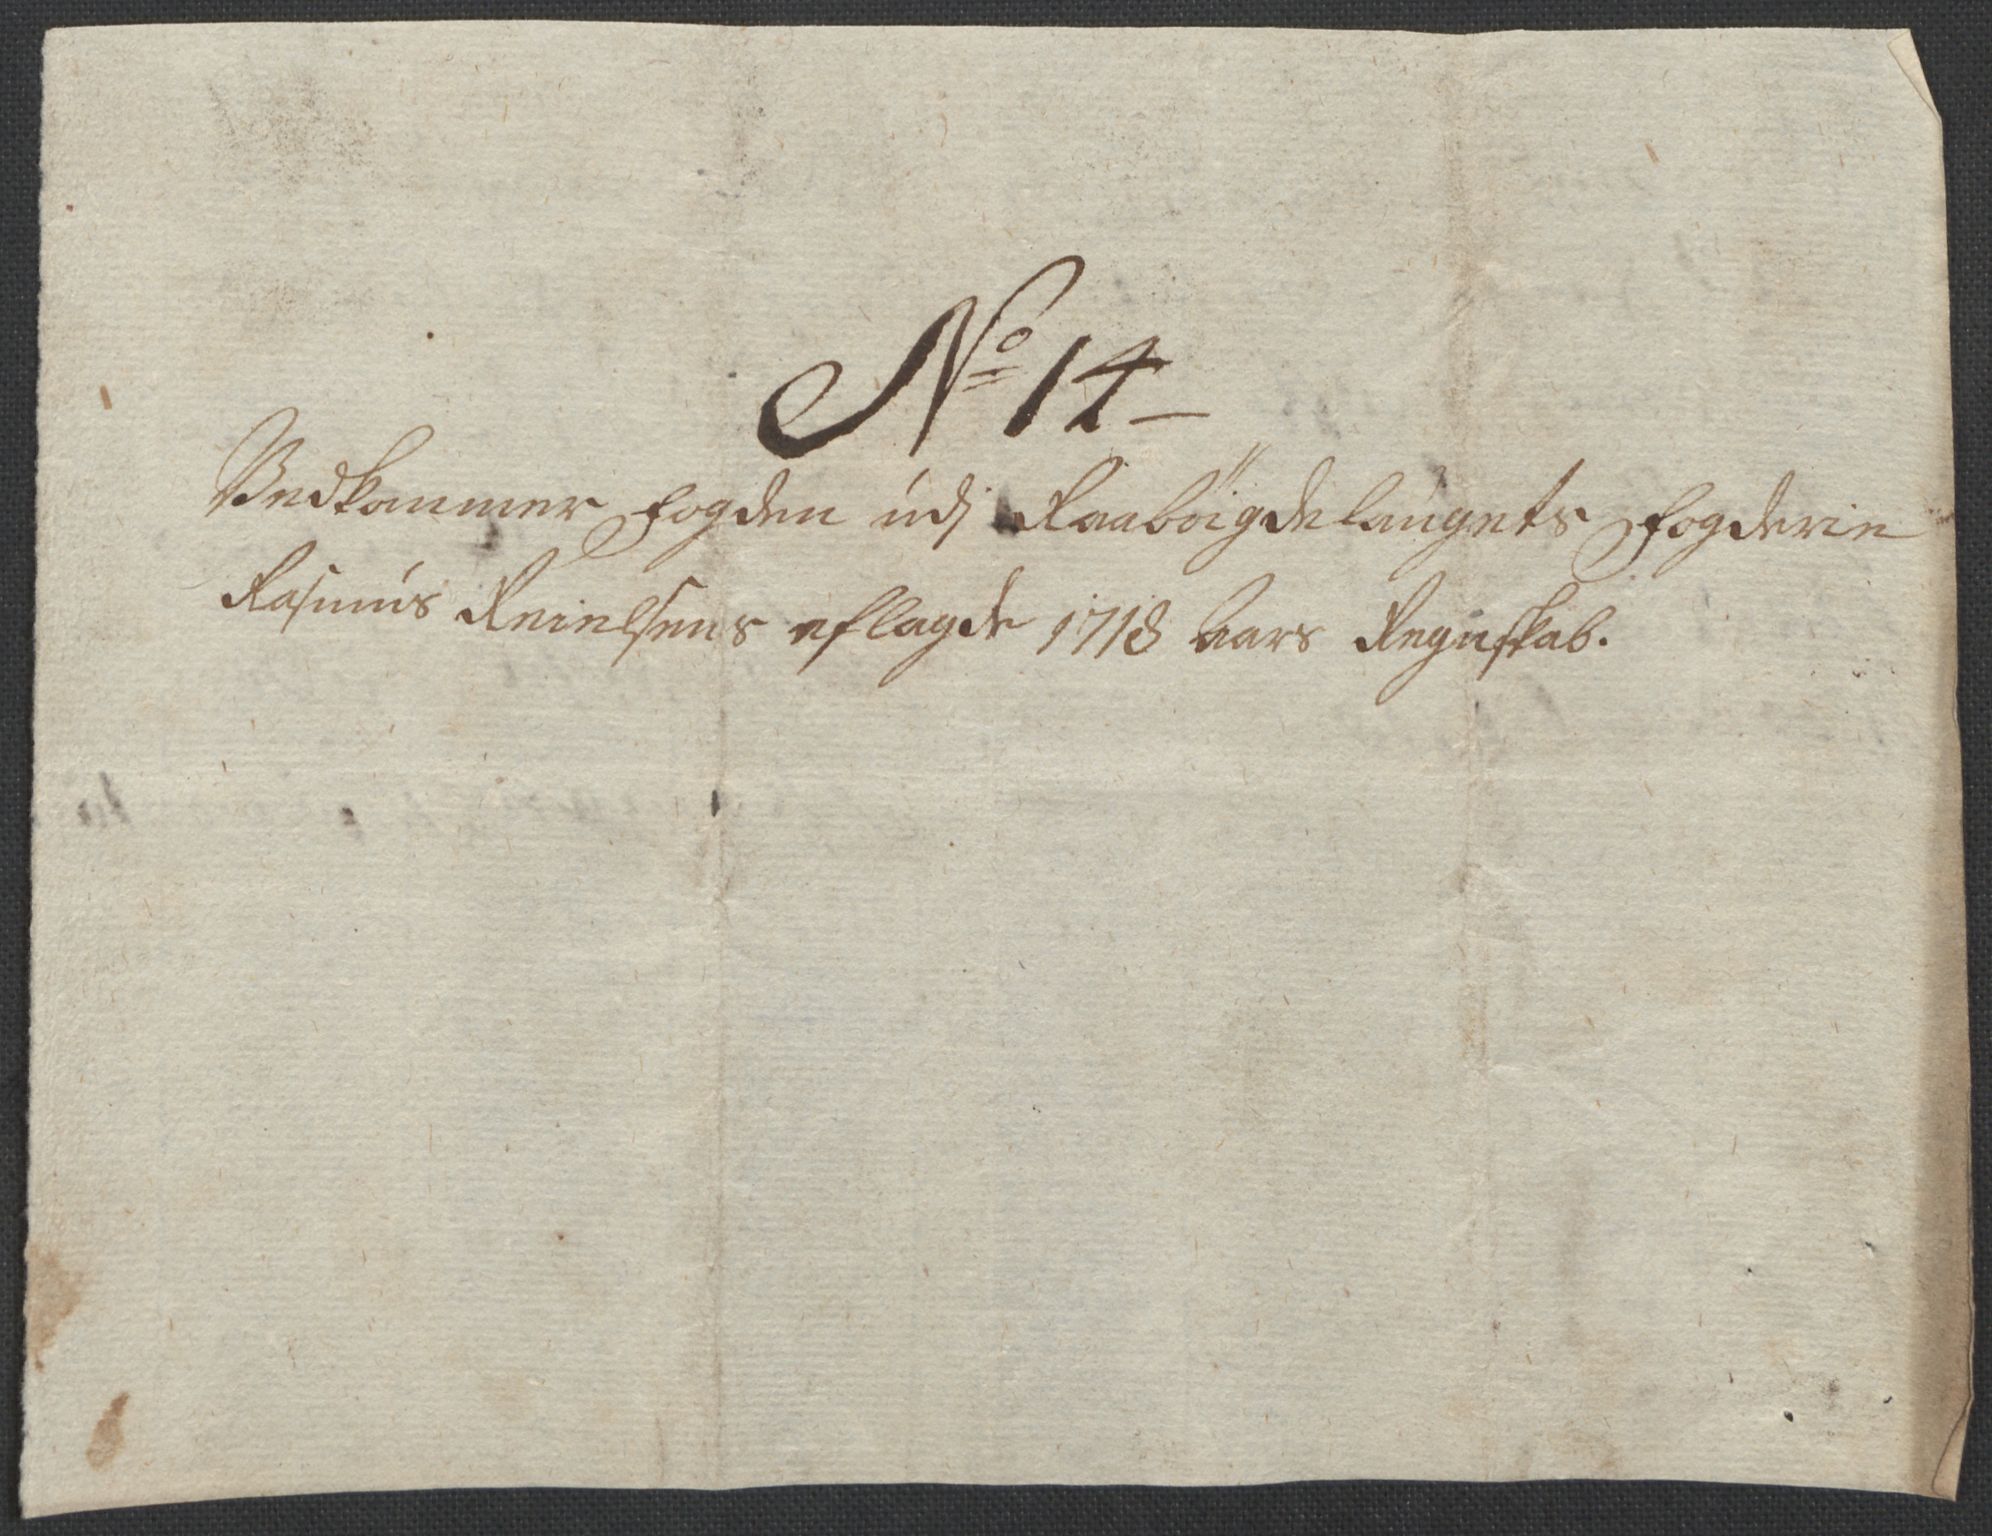 No 14
Vedkommer Fogden udj Raabÿgdelaugets Fogderie
Rasmus Reinelsens aflagde 1718 Aars Regnskab.